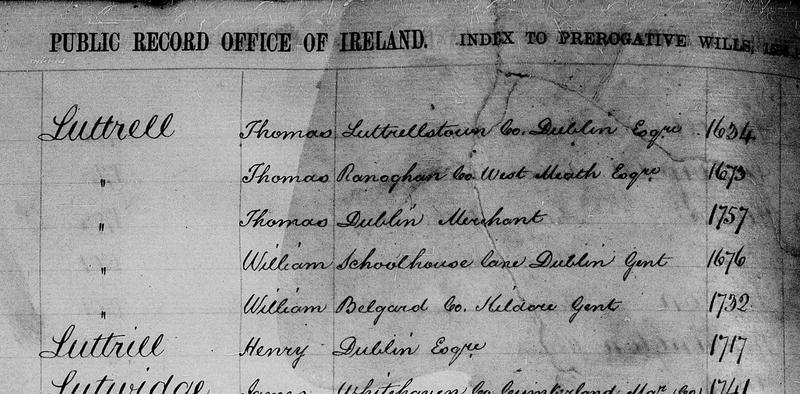 PUBLIC RECORD OFFICE OF IRELAND. INDEX TO PREROGATIVE WILLS,
Luttrell Thomas Luttrellstown Co. Dublin Esqre 1634
" Thomas Ranoghan Co West Meath Esqre 1673
" Thomas Dublin Merchant 1757
" William Schoolhouse lane Dublin Gent 1676
" William Belgard Co. Kildare Gent 1732
Luttrill Henry Dublin Esqre 1717
Lutwidge James Whitehaven Co Cumberland 1741